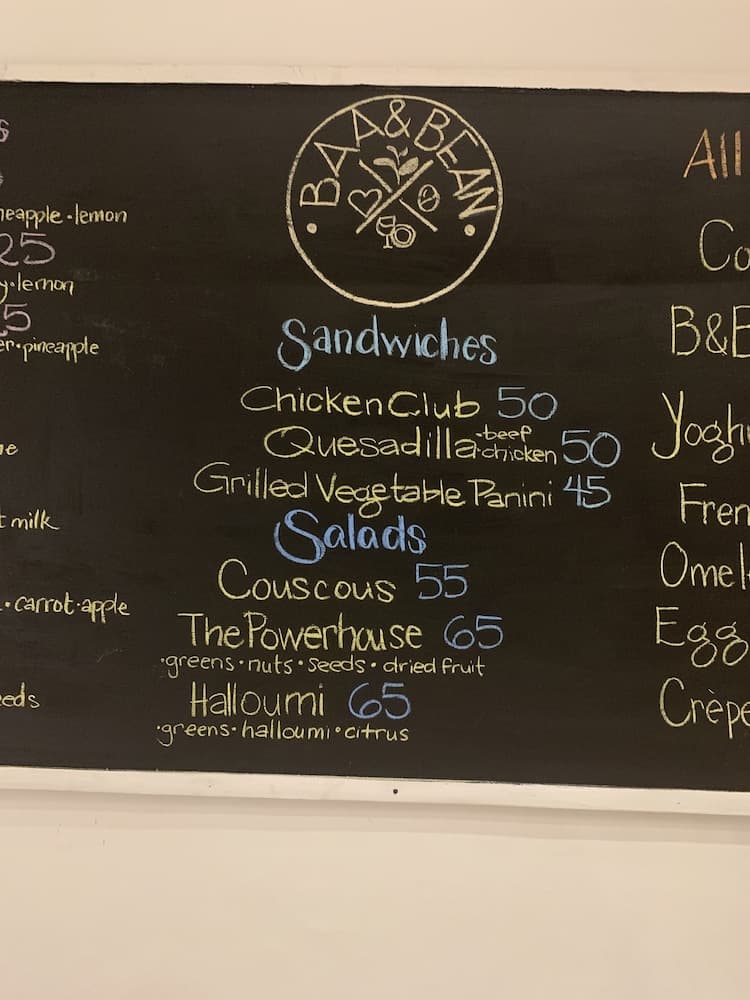 neapple · lemon
25
y · lemon
5
er · pineapple
t milk
· carrot · apple
eeds
BAA & BEAN
Sandwiches
Chicken Club 50
Quesadilla · beef · chicken 50
Grilled Vegetable Panini 45
Salads
Couscous 55
The Powerhouse 65
· greens · nuts · seeds · dried fruit
Halloumi 65
· greens · halloumi · citrus
All
Co
B&B
Yogh
Fren
Omel
Egg
Crêpe